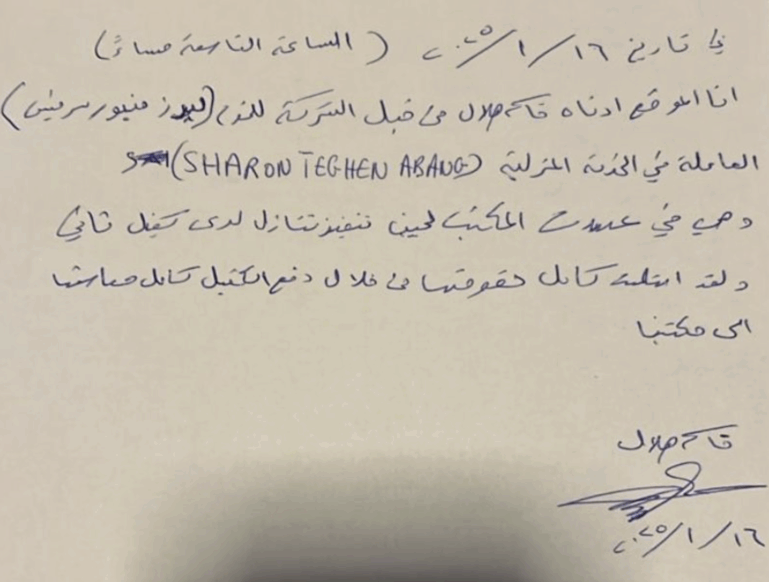 في تاريخ ١٦ / ١ / ٢٠٢٥ ( الساعة التاسعة مساءً )
انا الموقع ادناه قاسم جلال من قبل الشركة
العاملة في الخدمة المنزلية (SHARON TEGHEN ABANG)
وهي في المكتب لحين تنفيذ تنازل لدى كفيل ثاني
ولقد استلمت كامل حقوقها من خلال دفع الكفيل كامل معاشها
الى مكتبنا
قاسم جلال
١٦ / ١ / ٢٠٢٥